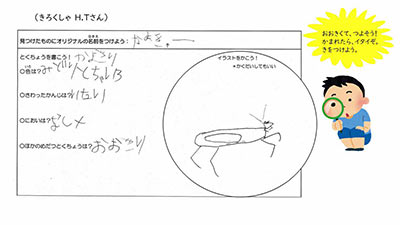 (きろくしゃ H.Tさん)
見つけたものにオリジナルの名前をつけよう：かまき。ー
とくちょうを書こう！
○色は？みどりとちゃいろ
○さわったかんじは？いたい
○においは？なし
○ほかのめだつとくちょうは？
イラストをかこう！
＊かくだいしてもいい
おおきくて、つよそう！
かまれたら、イタイぞ。
きをつけよう。